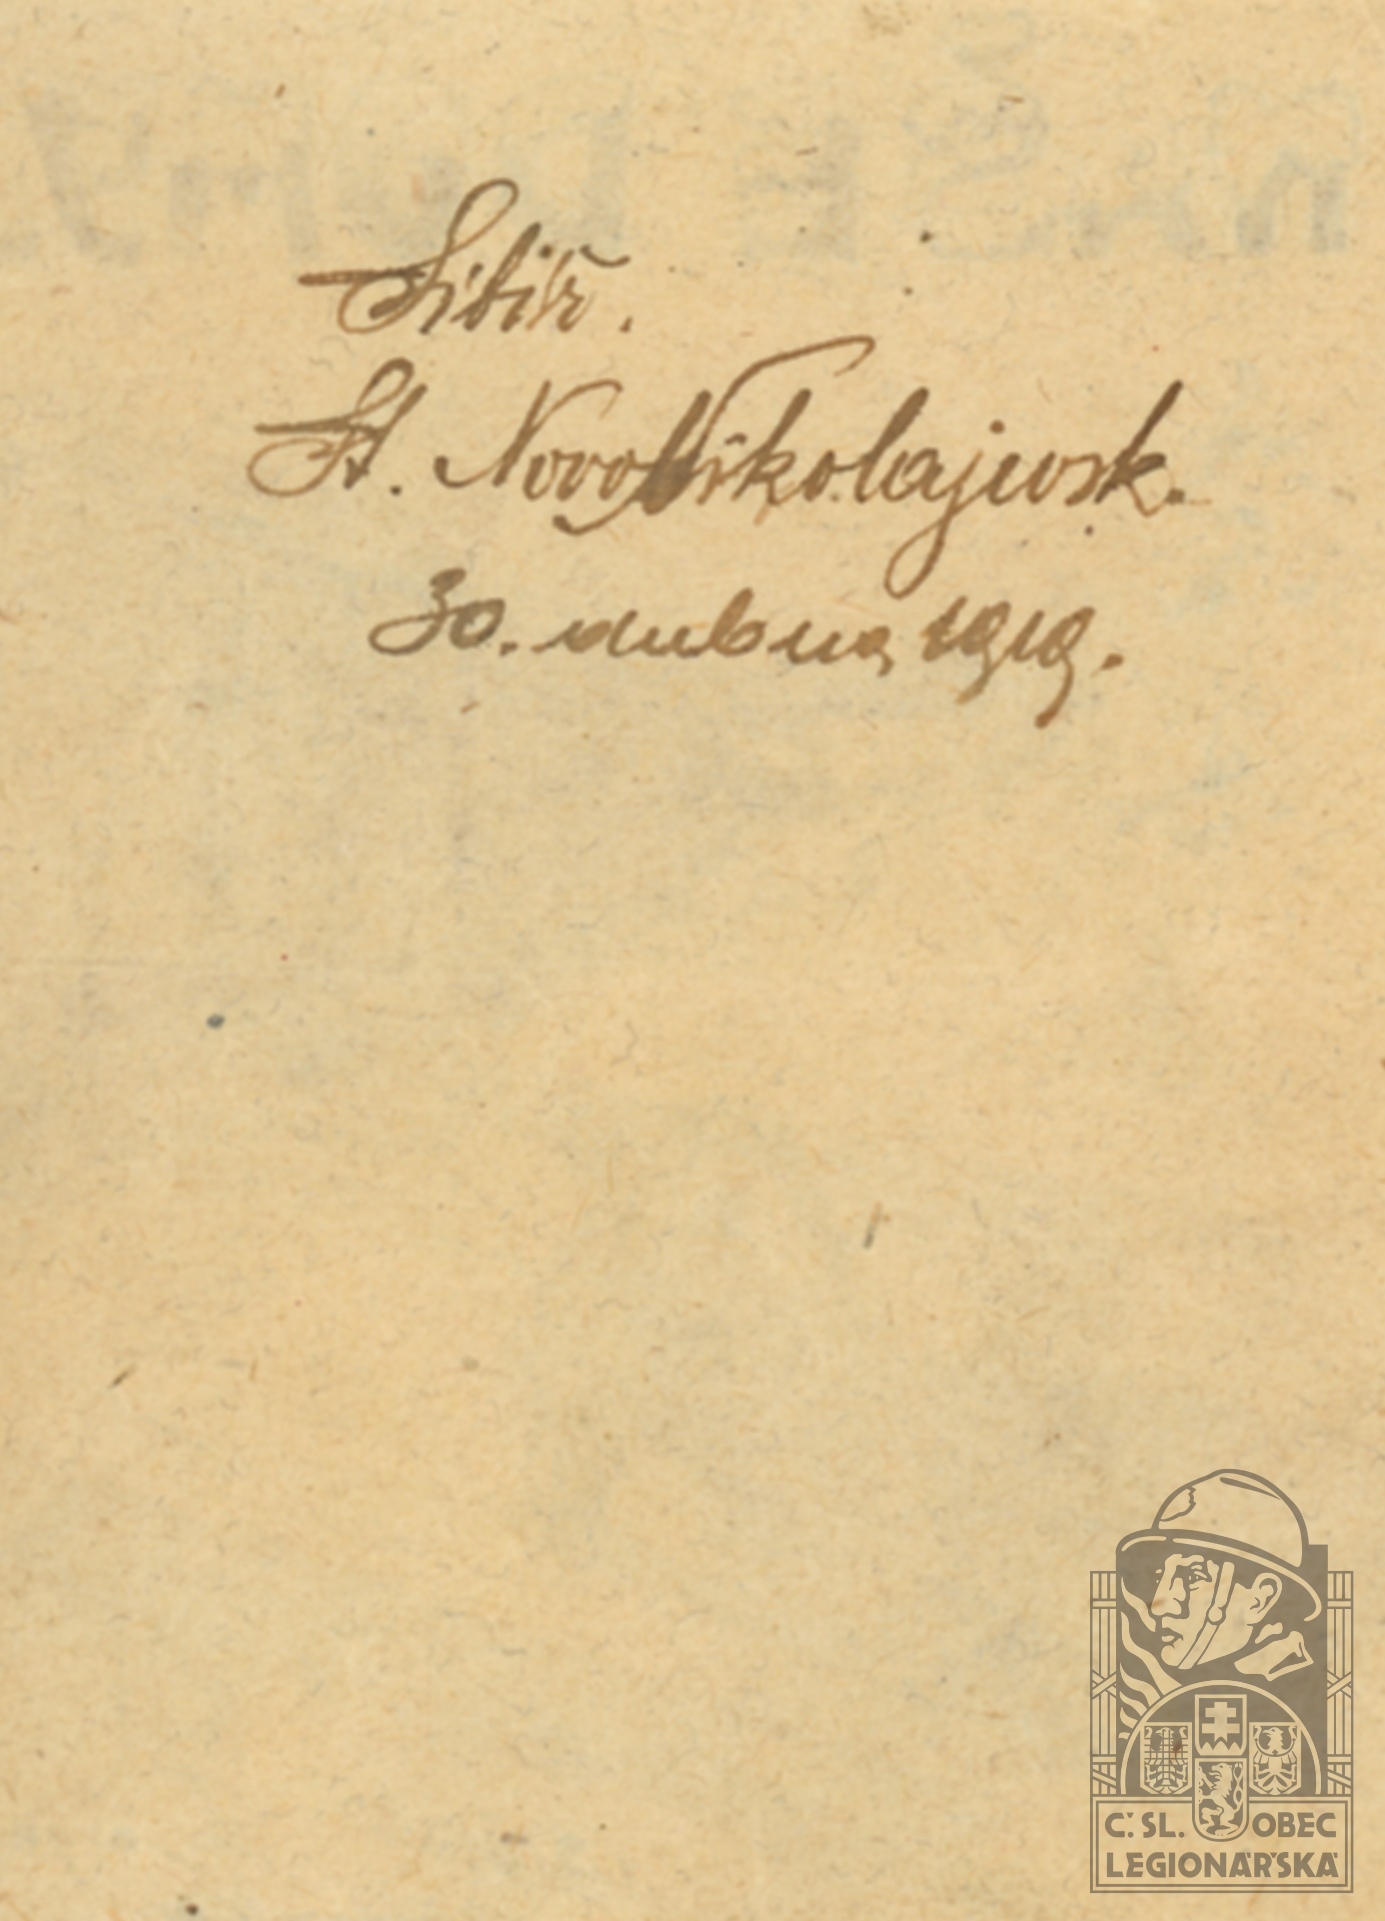 Sibiř.
St. NovoNikolajewsk.
30. dubna 1919.
Č. SL. OBEC
LEGIONÁŘSKÁ